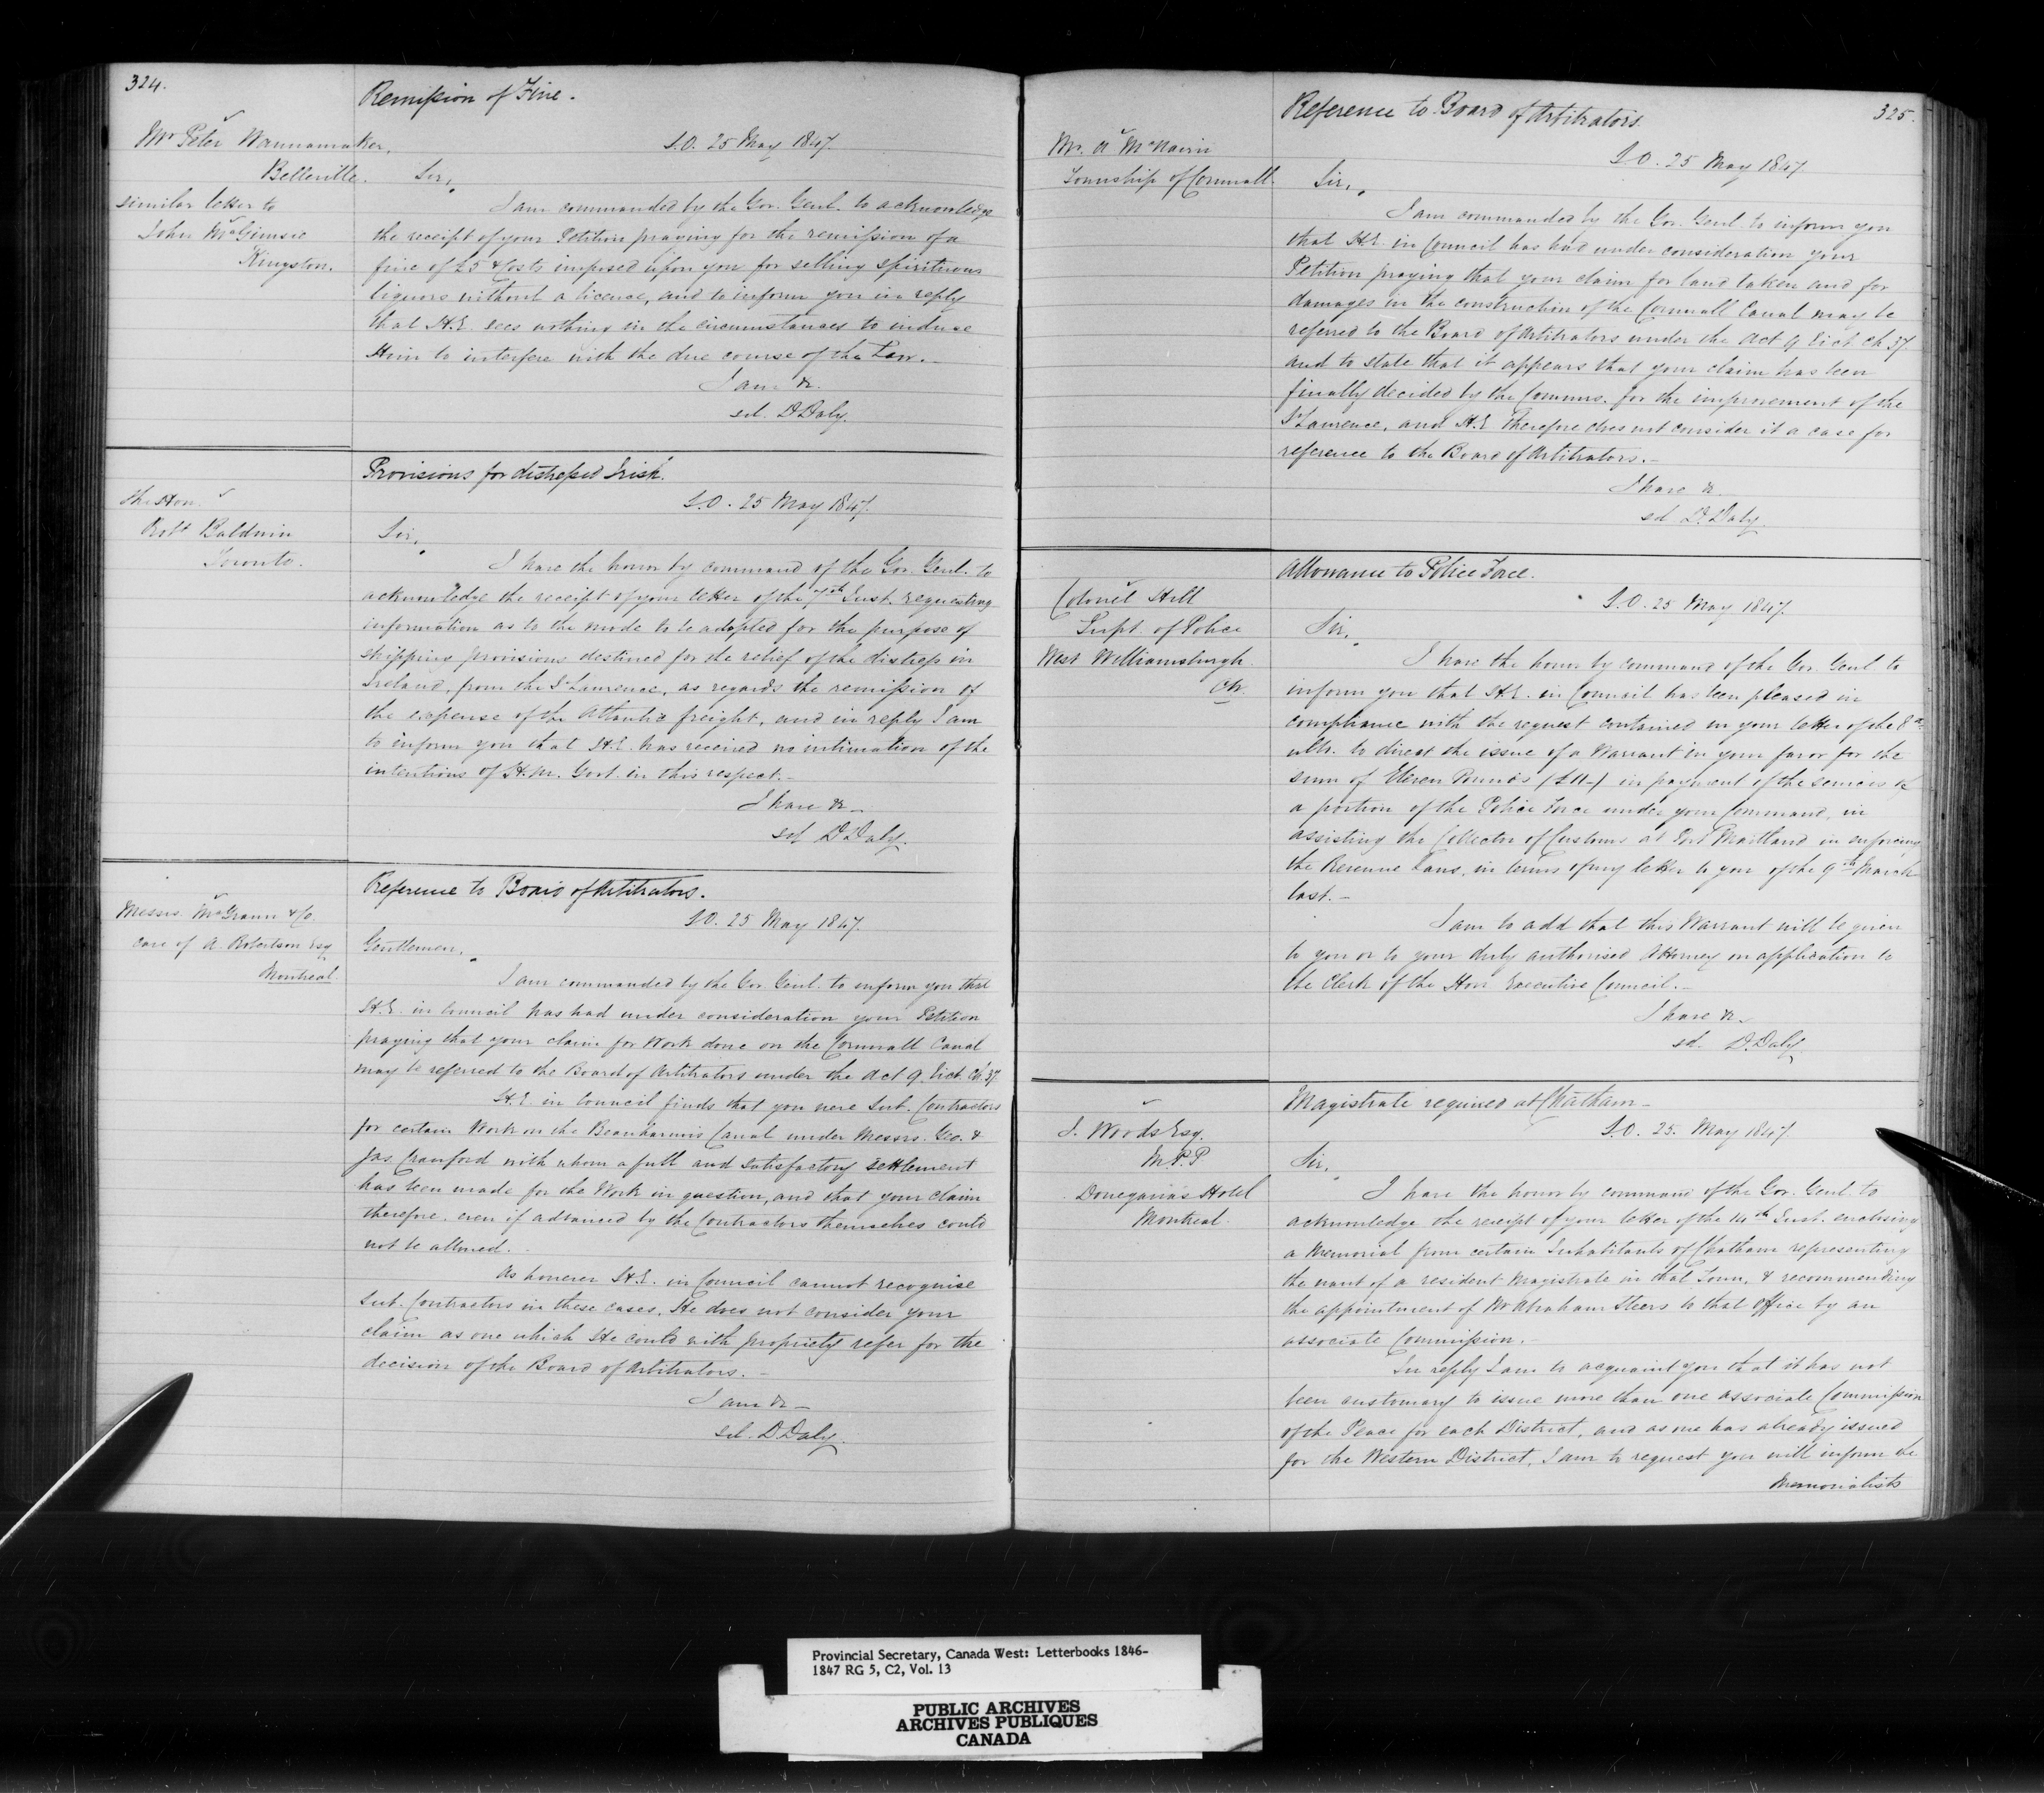 324.
Remission of Fine.
Mr Peter Wannamaker,
Belleville.
similar letter to
John McGimsie
Kingston.
S.O. 25 May 1847.
Sir,
I am commanded by the Gov. Genl. to acknowledge
the receipt of your Petition praying for the remission of a
fine of £5 & Costs imposed upon you for selling spirituous
liquors without a licence, and to inform you in reply
that H.E. sees nothing in the circumstances to induce
Him to interfere with the due course of the Law.—
I am &c.
sd. D Daly.
Provisions for distressed Irish.
The Hon.
Robt Baldwin
Toronto.
S.O. 25 May 1847.
Sir,
I have the honor by command of the Gov. Genl. to
acknowledge the receipt of your letter of the 7th Inst. requesting
information as to the mode to be adopted for the purpose of
shipping provisions destined for the relief of the distress in
Ireland, from the St Laurence, as regards the remission of
the expense of the Atlantic freight, and in reply I am
to inform you that H.E. has received no intimation of the
intentions of H.M. Govt. in this respect.—
I have &c—
sd D Daly.
Reference to Board of Arbitrators.
Messrs. McGrann & Co.
care of A. Robertson Esq
Montreal.
S.O. 25 May 1847.
Gentlemen,
I am commanded by the Gov Genl. to inform you that
H.E. in Council has had under consideration your Petition
praying that your claim for work done on the Cornwall Canal
may be referred to the Board of Arbitrators under the Act 9. Vict. Ch. 37.
H.E. in Council finds that you were Sub. Contractors
for certain Work on the Beauharnois Canal under Messrs. Geo. &
Jas. Crawford with whom a full and satisfactory settlement
has been made for the Work in question, and that your claim
therefore even if advanced by the Contractors themselves could
not be allowed.
As however H.E. in Council cannot recognise
Sub. Contractors in these cases, He does not consider your
claim as one which He could with propriety refer for the
decision of the Board of Arbitrators.—
I am &c—
sd. D. Daly.
Reference to Board of Arbitrators.
325.
Mr. A McNairn
Township of Cornwall.
S.O. 25 May 1847
Sir,
I am commanded by the Gov. Genl to inform you
that H.E. in Council has had under consideration your
Petition praying that your claim for land taken and for
damages in the construction of the Cornwall Canal may be
referred to the Board of Arbitrators under the Act 9 Vict. Ch. 37.
and to state that it appears that your claim has been
finally decided by the Commrs. for the improvement of the
St Laurence, and H.E. therefore does not consider it a case for
reference to the Board of Arbitrators.—
I have &c.
sd D. Daly.
Allowance to Police Force.
Colonel Hill
Supt. of Police
West Williamsburgh.
CW.
S.O. 25 May 1847.
Sir,
I have the honor by command of the Gov. Genl to
inform you that H.E. in Council has been pleased in
compliance with the request contained in your letter of the 8th
ulto. to direct the issue of a Warrant in your favor for the
sum of Eleven Pounds (£11-) in payment of the services of
a portion of the Police Force under your Command, in
assisting the Collector of Customs at Port Maitland in enforcing
the Revenue Laws, in terms of my letter to you of the 9th March
last.—
I am to add that this Warrant will be given
to you or to your duly authorised Attorney on application to
the Clerk of the Hon Executive Council.—
I have &c.
sd. D. Daly
Magistrate required at Chatham—
J. Woods Esq.
M.P.P
Donegana's Hotel
Montreal.
S.O. 25. May 1847.
Sir,
I have the honor by command of the Gov. Genl. to
acknowledge the receipt of your letter of the 14th Inst. enclosing
a Memorial from certain Inhabitants of Chatham representing
the want of a resident Magistrate in that Town, & recommending
the appointment of Mr Abraham Steers to that Office by an
associate Commission.—
In reply I am to acquaint you that it has not
been customary to issue more than one associate Commission
of the Peace for each District, and as one has already issued
for the Western District, I am to request you will inform the
Memorialists
Provincial Secretary, Canada West: Letterbooks 1846-
1847 RG 5, C2, Vol. 13
PUBLIC ARCHIVES
ARCHIVES PUBLIQUES
CANADA